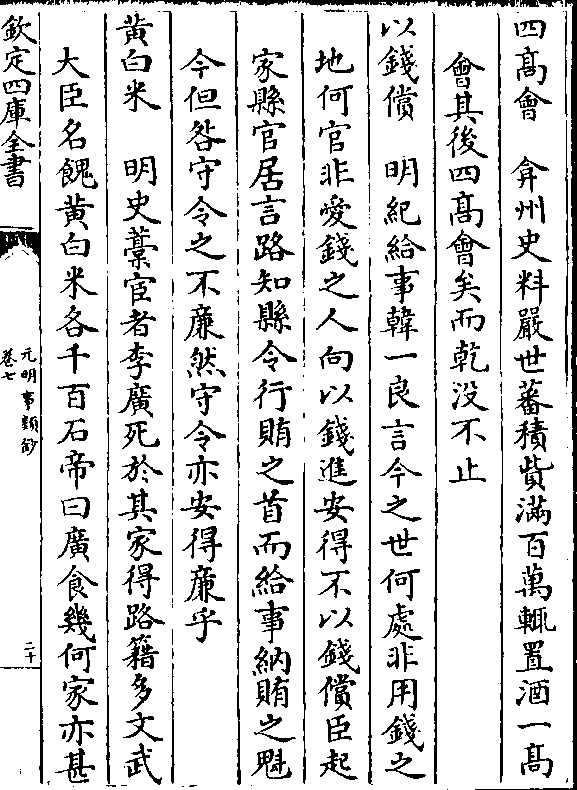 四髙會　弇州史料嚴世蕃積貲滿百萬輒置酒一髙
會其後四髙會矣而乾没不止
以錢償　明紀給事韓一良言今之世何處非用錢之
地何官非愛錢之人向以錢進安得不以錢償臣起
家縣官居言路知縣令行賄之首而給事納賄之魁
今但咎守令之不廉然守令亦安得廉乎
黄白米　明史藁宦者李廣死於其家得路籍多文武
大臣名餽黄白米各千百石帝曰廣食幾何家亦甚
欽定四庫全書
元明事類鈔
卷七
二十